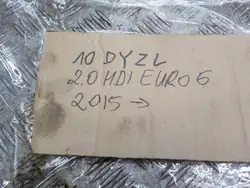 10 DYZL
2.0 HDI EURO 6
2015 →